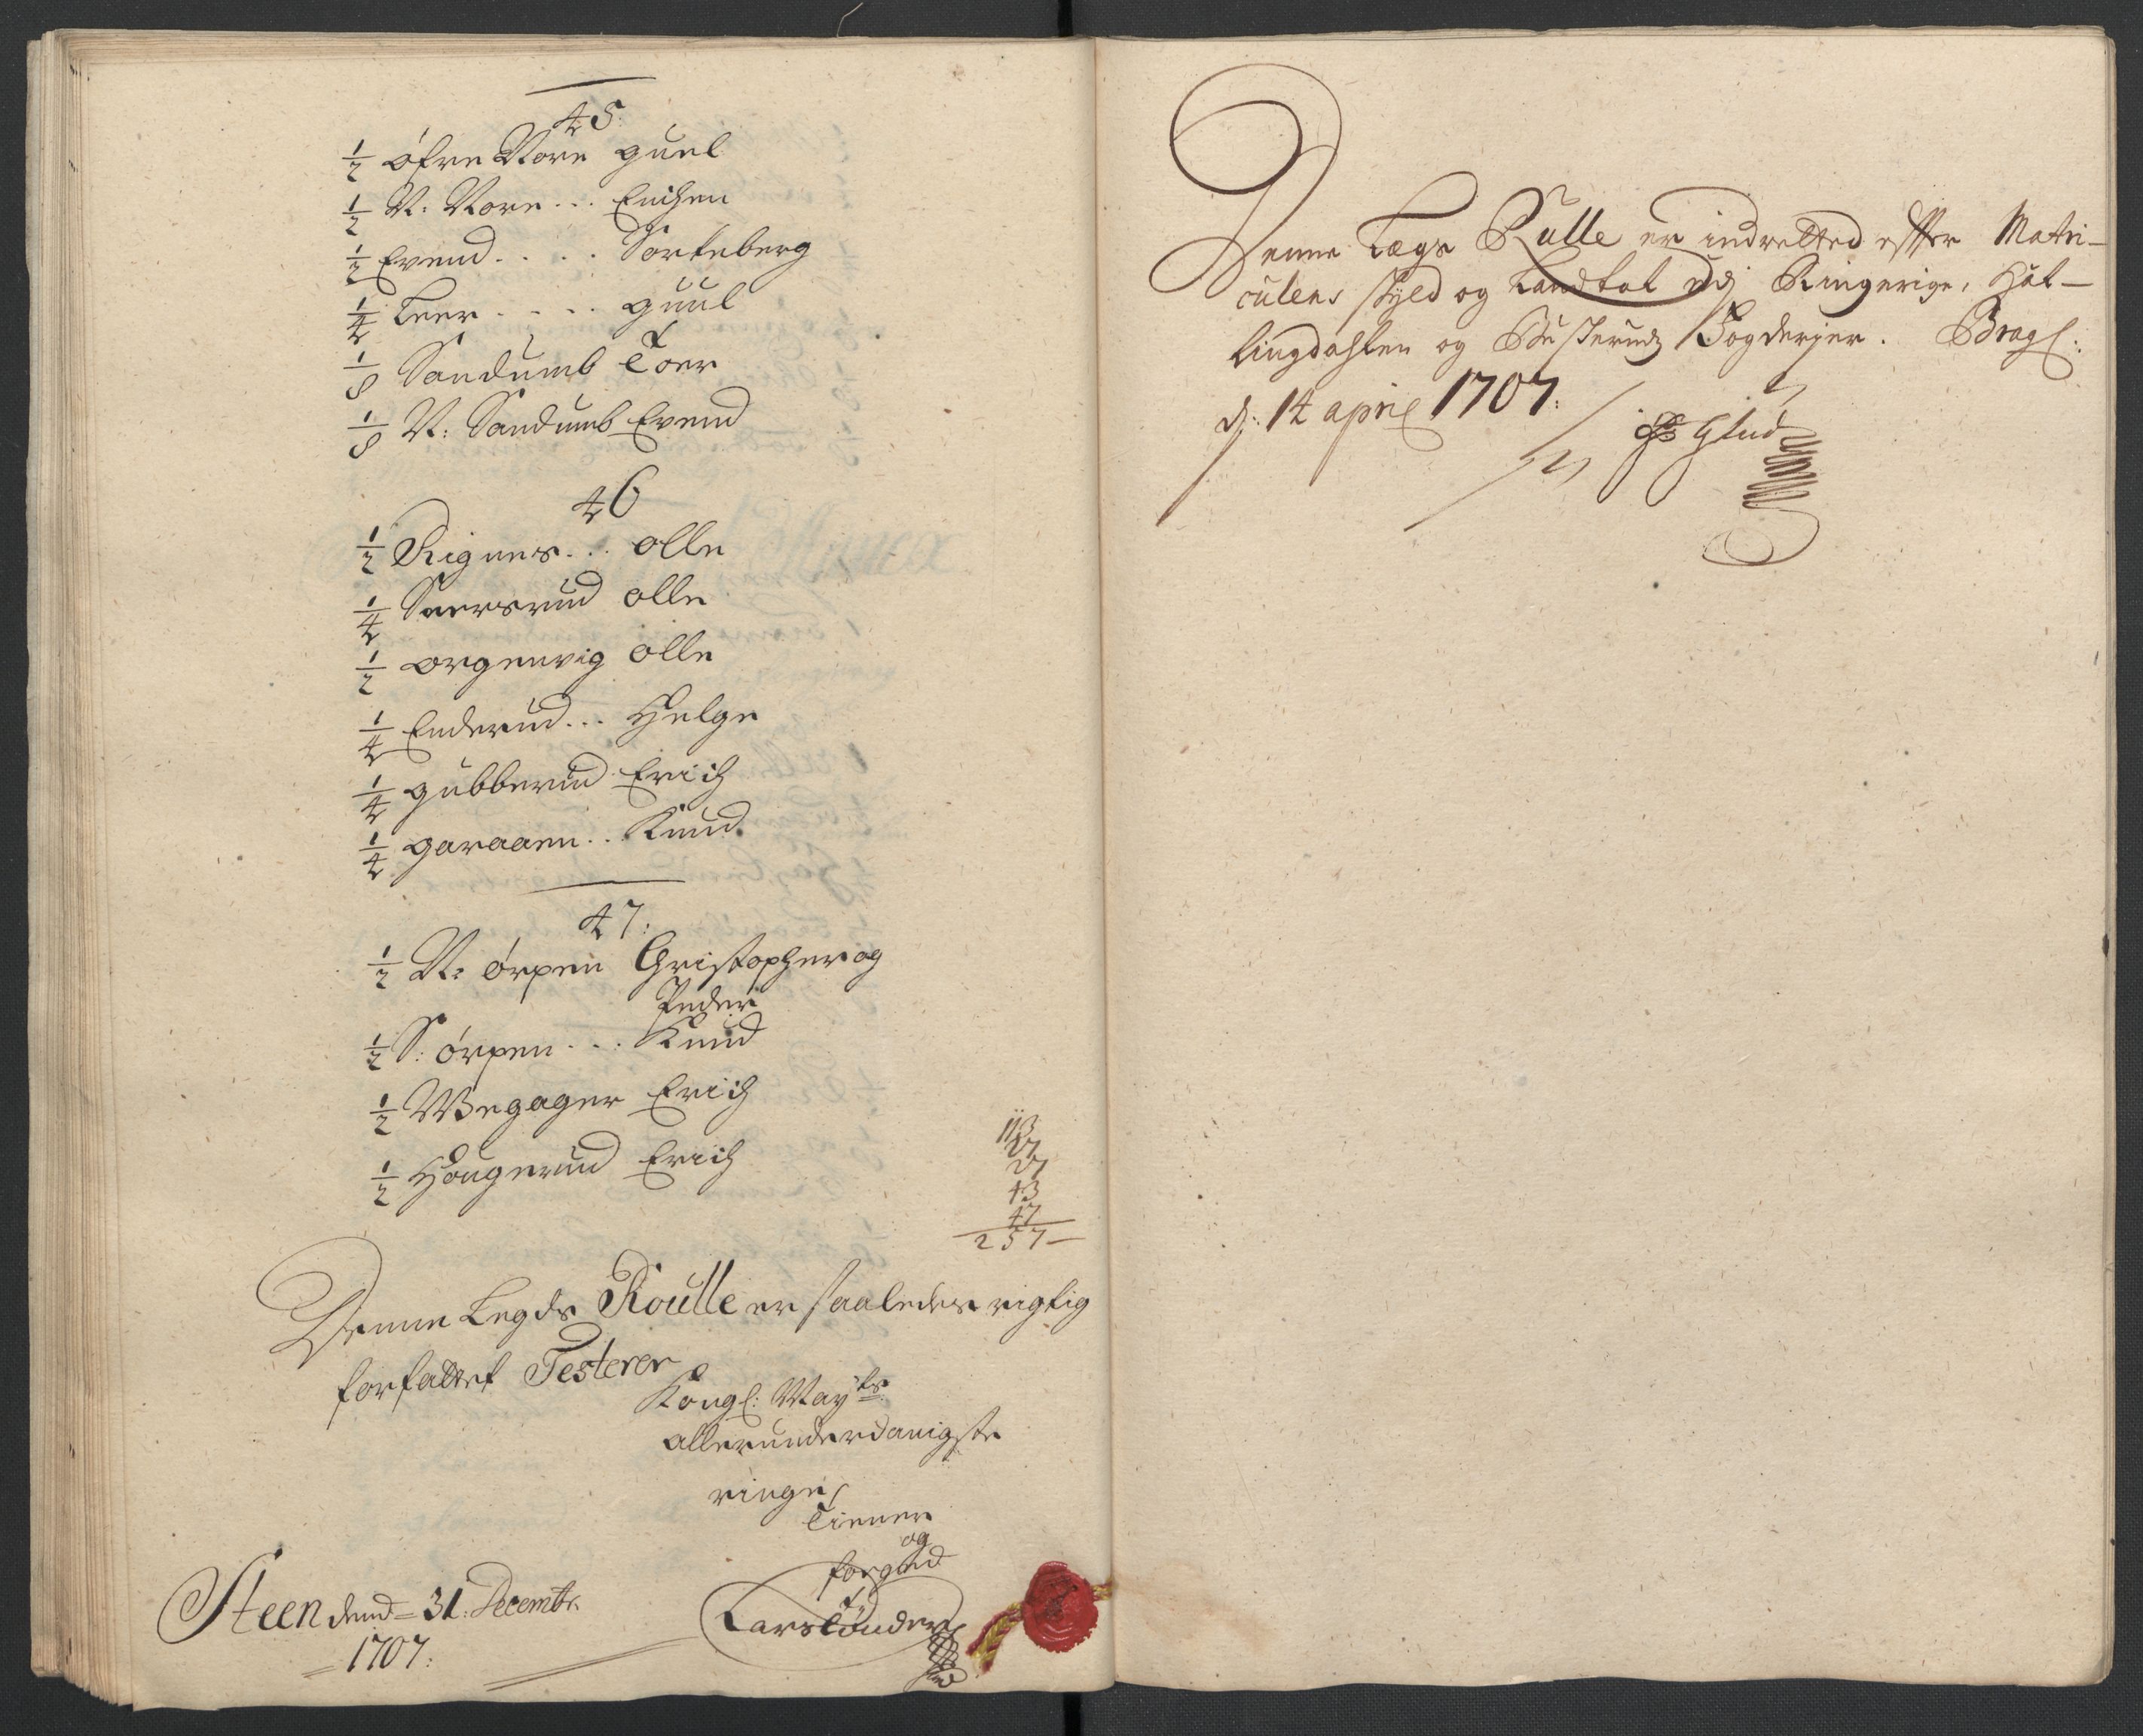 45.
1/2 öfre Nore guul
1/2 N: Nore ... Erichen
1/2 Evend .... Sorteberg
1/4 Leer .... guul
1/8 Sandumb Toer
1/8 N: Sandumb Evend
46
1/2 Rignes ... olle
1/4 Sversrud olle
1/2 orgenvig olle
1/4 Enderud ... Helge
1/4 gubberud Erich
1/4 garaaen .. Knud
47:
1/2 N: örpen Christopher og
Peder
1/2 S: örpen ... Knud
1/2 Wegager Erich
1/2 Hougerud Erich
113
27
27
43
47
257
Denne Legds Roulle er saaledes rigtig
forfattet Testerer
Kongl: Mayts
allerunderdanigste
ringe
Tiener
og
fogd
Lars Tönder
Steen dend 31: Decembr.
1707:
Denne Lægs Rulle er indretted efter Matri-
culens skyld og Landtal udj Ringerige, Hal-
lingdahlen og Buskeruds Fogderier. Brags:
d: 14 april 1707:
Glud